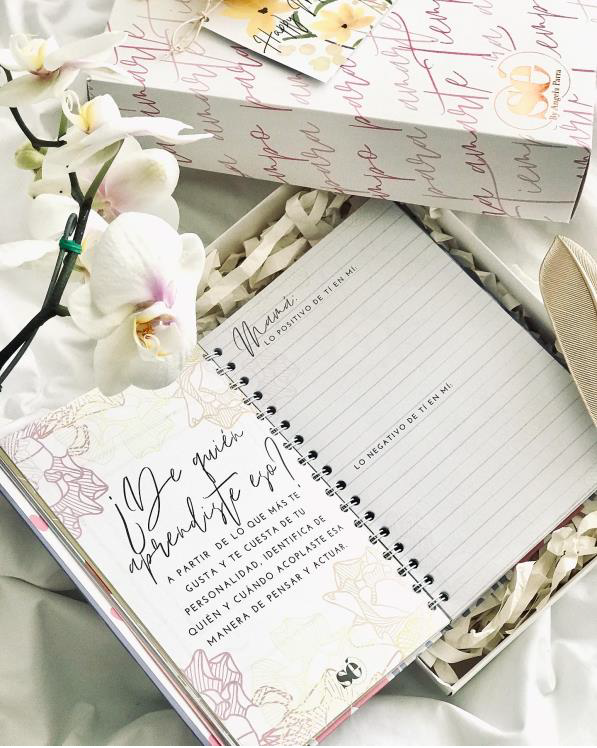 Happy
amarte
para
tiempo
sé
By Angela Parra
Mamá:
LO POSITIVO DE TÍ EN MÍ.
LO NEGATIVO DE TÍ EN MÍ.
¿De quién
aprendiste eso?
A PARTIR DE LO QUE MÁS TE
GUSTA Y TE CUESTA DE TU
PERSONALIDAD, IDENTIFICA DE
QUIÉN Y CUÁNDO ACOPLASTE ESA
MANERA DE PENSAR Y ACTUAR.
sé